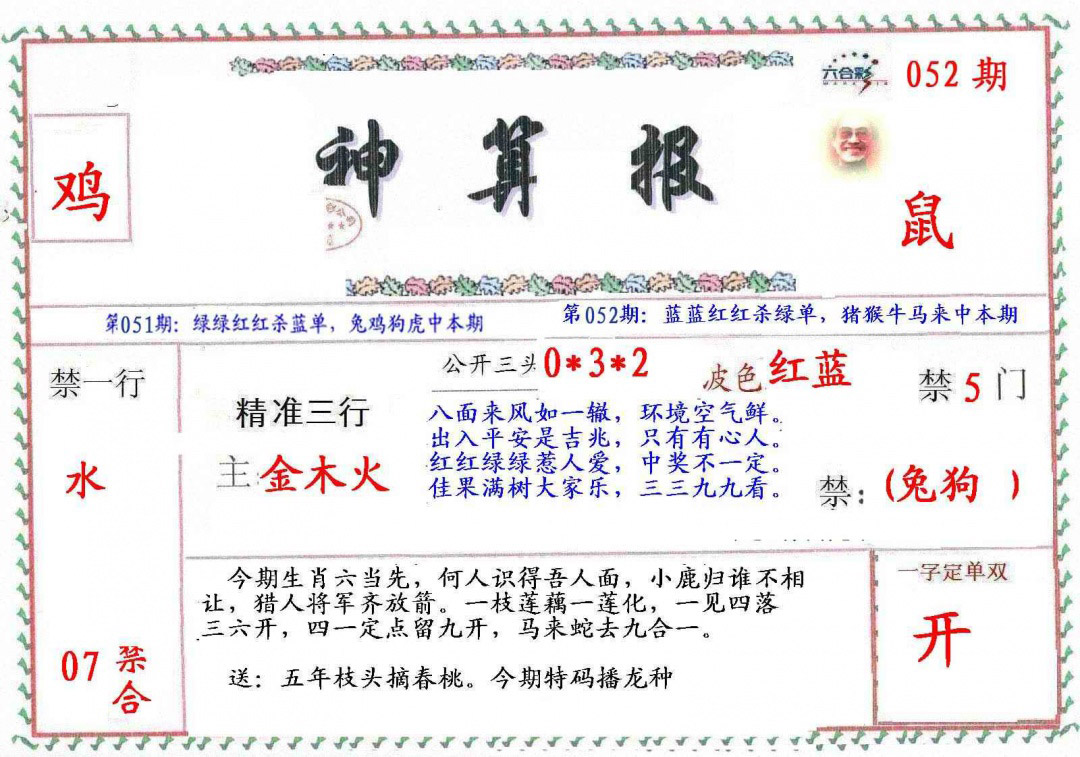 六合彩 052期
神算报
鸡
鼠
第051期：绿绿红红杀蓝单，兔鸡狗虎中本期
第052期：蓝蓝红红杀绿单，猪猴牛马来中本期
禁一行
水
07 禁合
精准三行
主:金木火
公开三头0*3*2
波色红蓝
八面来风如一辙，环境空气鲜。
出入平安是吉兆，只有有心人。
红红绿绿惹人爱，中奖不一定。
佳果满树大家乐，三三九九看。
禁5门
禁：(兔狗 )
今期生肖六当先，何人识得吾人面，小鹿归谁不相
让，猎人将军齐放箭。一枝莲藕一莲化，一见四落
三六开，四一定点留九开，马来蛇去九合一。
送：五年枝头摘春桃。今期特码播龙种
一字定单双
开